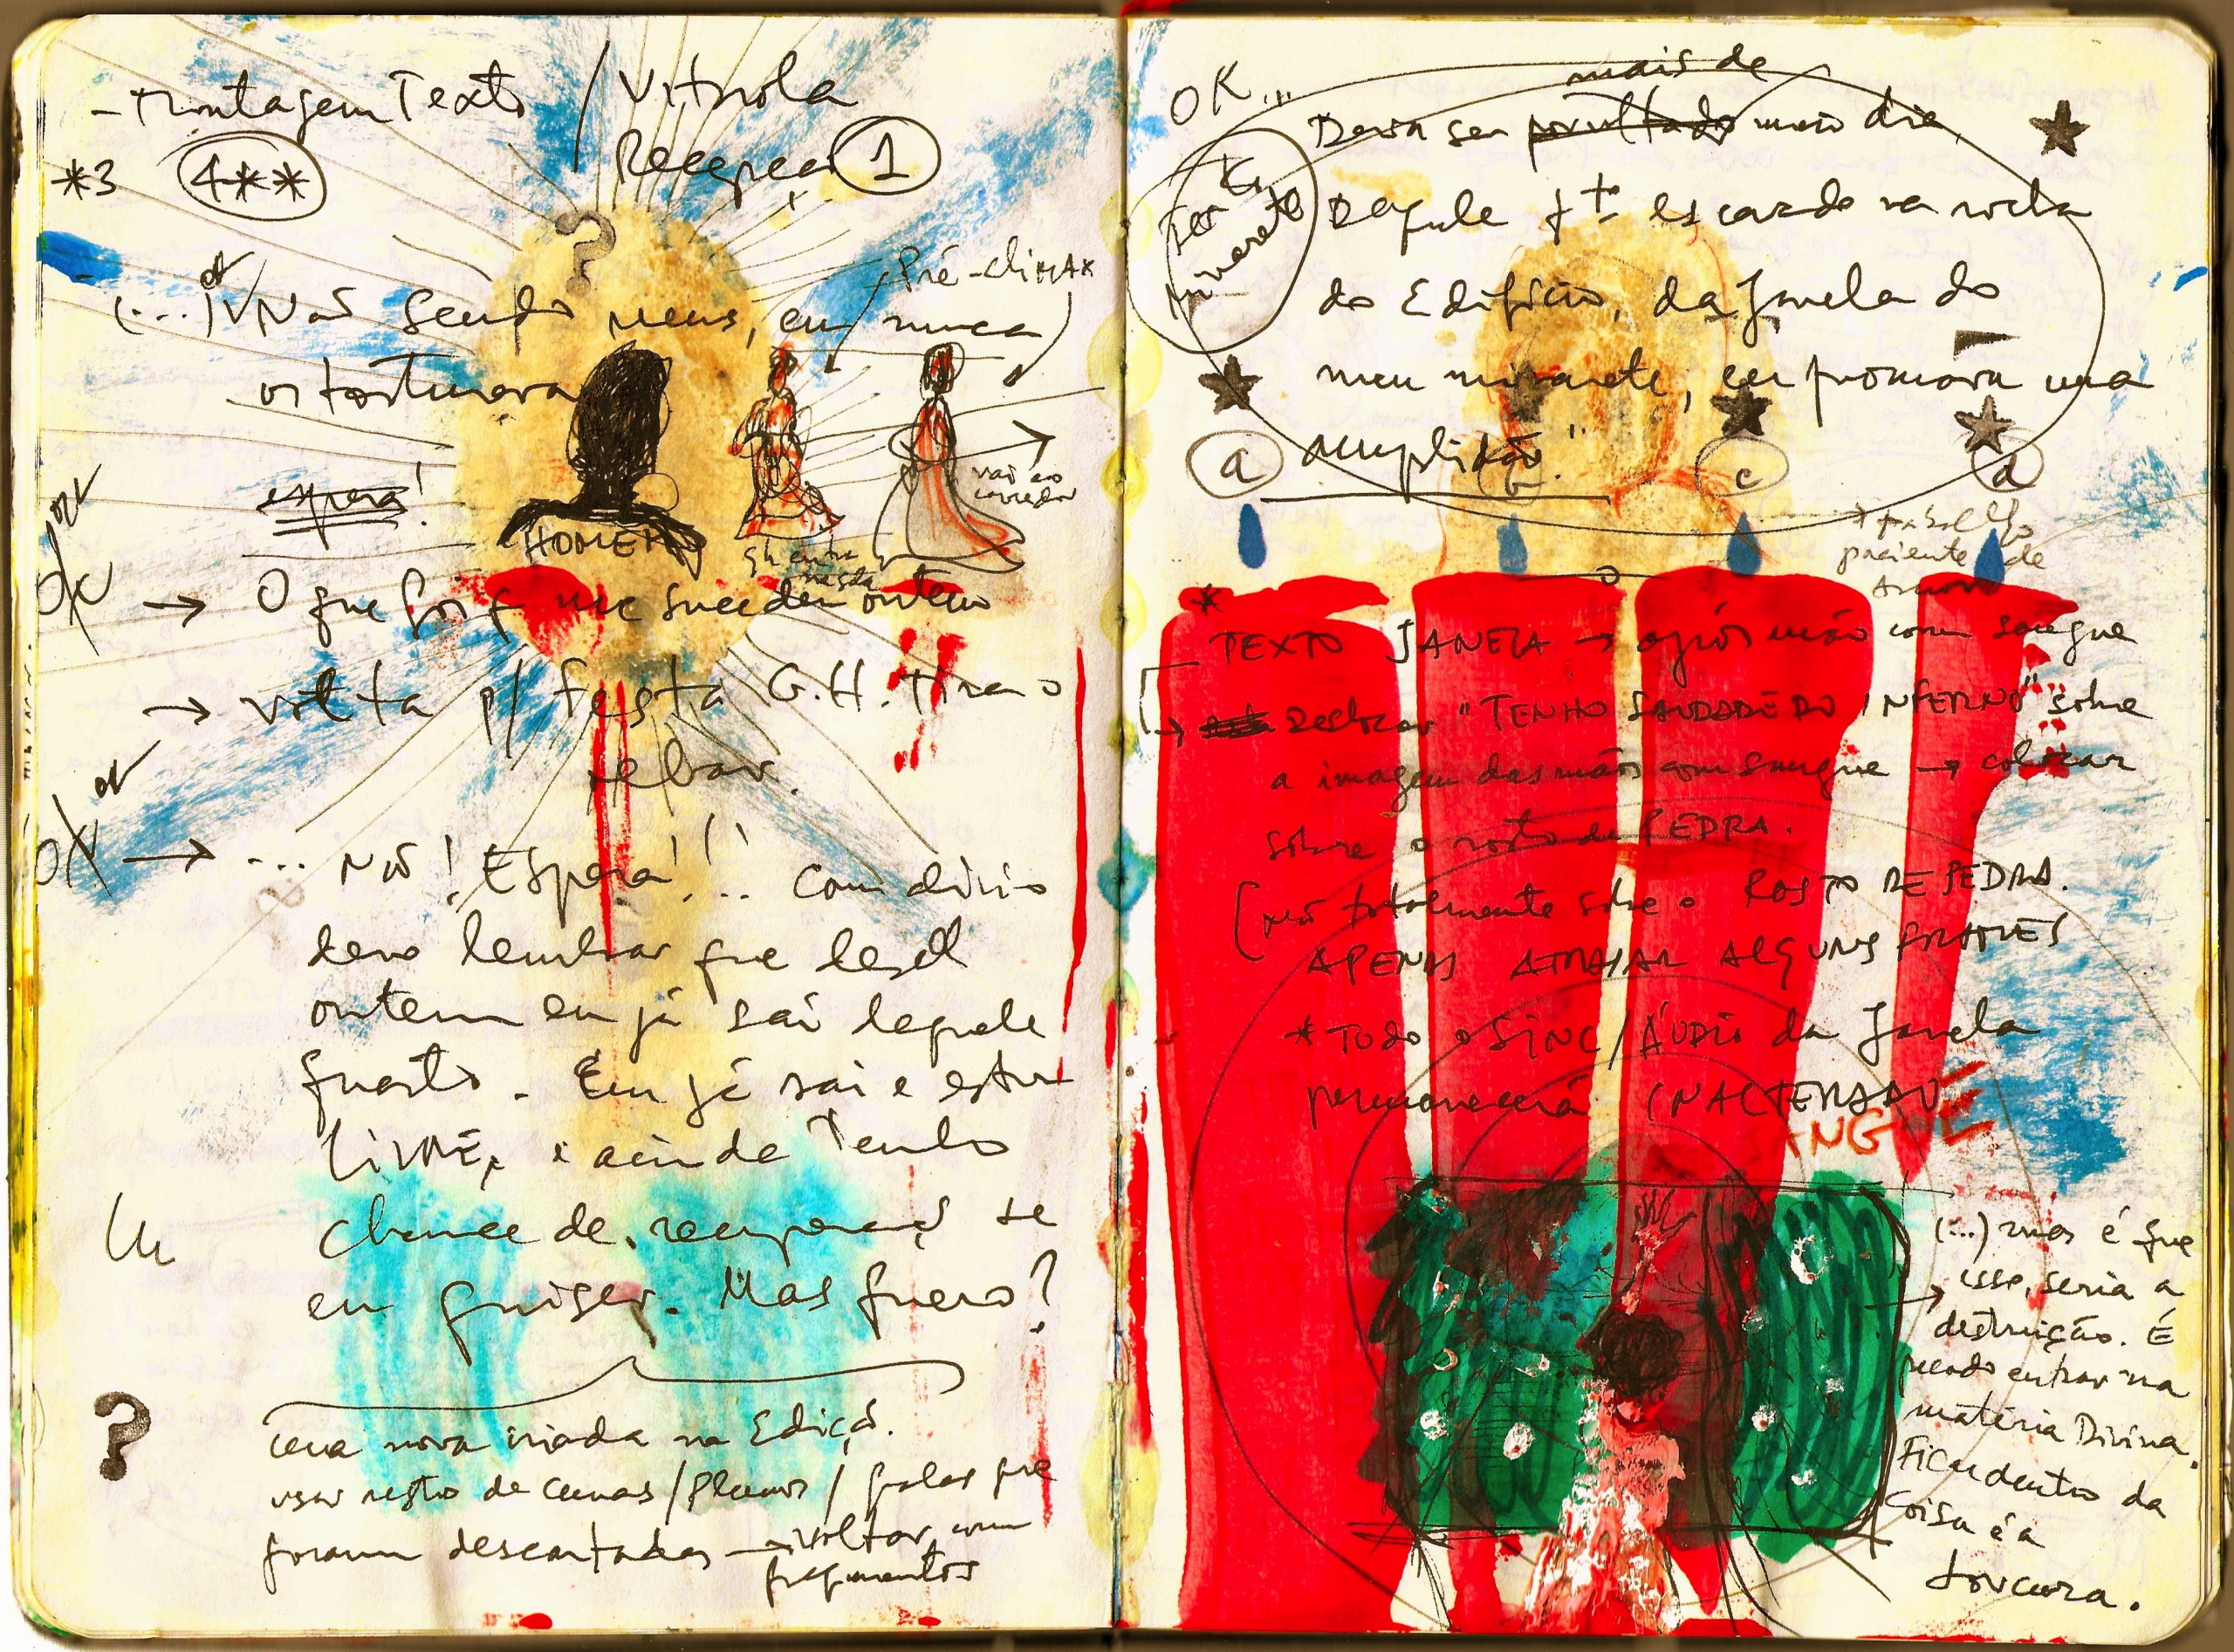 - Montagem Texto / Vitrola
Recepção 1
*3 4**
?
Pré-climax
(...) Não sendo meus, eu nunca
os torturara
espera!
vai ao
corredor
HOMEM
GH entra
OK → O que foi q me sucedeu ontem
→ volta p/ festa G.H. tira o
OK → ... Não! Espera!!.. Com alívio
devo lembrar que desde
ontem eu já saí daquele
quarto. Eu já saí e estou
LIVRE, e ainda tenho
chance de recuperação se
eu quiser. Mas quero?
?
cena nova criada na Edição.
usar resto de cenas/planos/falas que
foram descartadas → voltar com
fragmentos
OK...
mais de
Devia ser meio dia
Daquele qto escavado na rocha
do Edifício, da janela do
meu minarete, eu
amplidão."
minarete
a
b
c
d
paciente de
*
TEXTO JANELA → após mão com sangue
→ Deslocar "TENHO SAUDADE DO INFERNO" sobre
a imagem das mãos com sangue → colocar
sobre o rosto de PEDRA.
(não totalmente sobre o ROSTO DE PEDRA.
APENAS ATRASAR ALGUNS FRAMES
* TODO O SINC/ÁUDIO da Janela
permanecerá INALTERADO
SANGUE
(...) mas é que
→ isso seria a
destruição. É
pecado entrar na
matéria Divina.
Ficar dentro da
coisa é a
loucura.